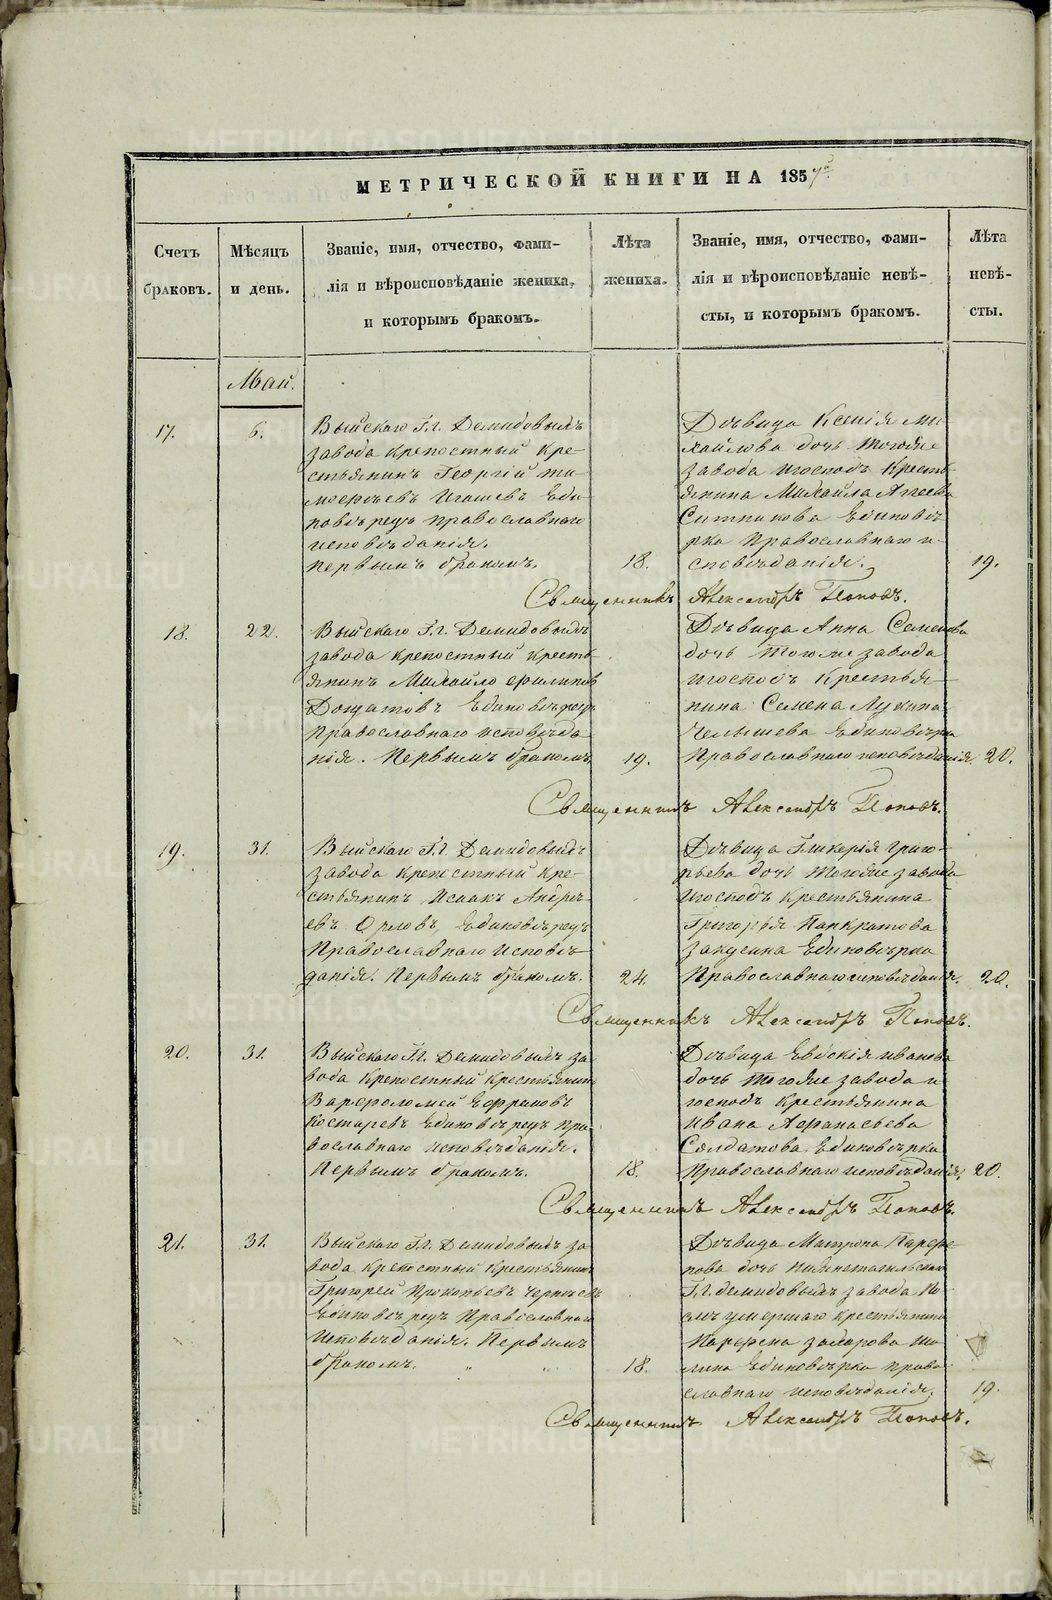 МЕТРИЧЕСКОЙ КНИГИ НА 1857 г.
Счетъ браковъ.
Мѣсяцъ и день.
Званіе, имя, отчество, фами-
лія и вѣроисповѣданіе жениха,
и которымъ бракомъ.
Лѣта
жениха.
Званіе, имя, отчество, фами-
лія и вѣроисповѣданіе невѣ-
сты, и которымъ бракомъ.
Лѣта
невѣ-
сты.
Май.
17.
6.
Выйскаго Г.г. Демидовыхъ
завода крепостный кре-
стьянинъ Георгій Ти-
мофеевъ Едi-
новѣрецъ православнаго
исповѣданія.
первымъ бракомъ.
18.
Дѣвица Ксенія Ми-
хайлова дочь тогоже
завода игосподъ Кресть-
янина Михайла Агеева
Ситникова Единовѣ
рка Православнаго и-
сповѣданія.
19.
Священникъ Александръ Поповъ.
18.
22.
Выйскаго Г.г. Демидовыхъ
завода крепостный кресть-
янинъ Михайло Филипов
Дощатовъ Единовѣрецъ
Православнаго исповѣда
нія. Первымъ бракомъ
19.
Дѣвица Анна Семенова
дочь тогоже завода
игосподъ Крестья-
нина Семена Лукина
Челышева Единовѣрка
Православнаго исповѣданія.
20.
Священникъ Александръ Поповъ.
19.
31.
Выйскаго Г.г. Демидовыхъ
завода крепостный кре-
стьянинъ Исаакъ Андре-
евъ Орловъ Единовѣрецъ
Православнаго Исповѣ-
данія. Первымъ бракомъ.
24.
Дѣвица Гликерія Григо-
рьева дочь тогоже завода
игосподъ крестьянина
Григорья Панкратова
Закусина Единовѣрка
Православнаго исповѣданія.
20.
Священникъ Александръ Поповъ.
20.
31.
Выйскаго Г.г. Демидовыхъ за
вода Крепостный Крестьянинъ
Варфоломей Ефимовъ
Костаревъ Единовѣрецъ Пра-
вославнаго исповѣданія.
Первымъ бракомъ.
18.
Дѣвица Евдокія иванова
дочь тогоже завода и
господъ Крестьянина
ивана Афанасьева
Солдатова Единовѣрка
Православнаго исповѣданія.
20.
Священникъ Александръ Поповъ.
21.
31.
Выйскаго Г.г. Демидовыхъ за
вода Крепостный Крестьянинъ
Григорей Прокопьевъ
Единовѣрецъ Православнаго
Исповѣданія. Первымъ
бракомъ.
18.
Дѣвица Матрона Парфе
нова дочь Нижнетагильскаго
Г.г. демидовыхъ завода
умершаго крестьянина
Парфена Захарова
Единовѣрка право
славнаго исповѣданія.
19.
Священникъ Александръ Поповъ.
METRIKI.GASO-URAL.RU